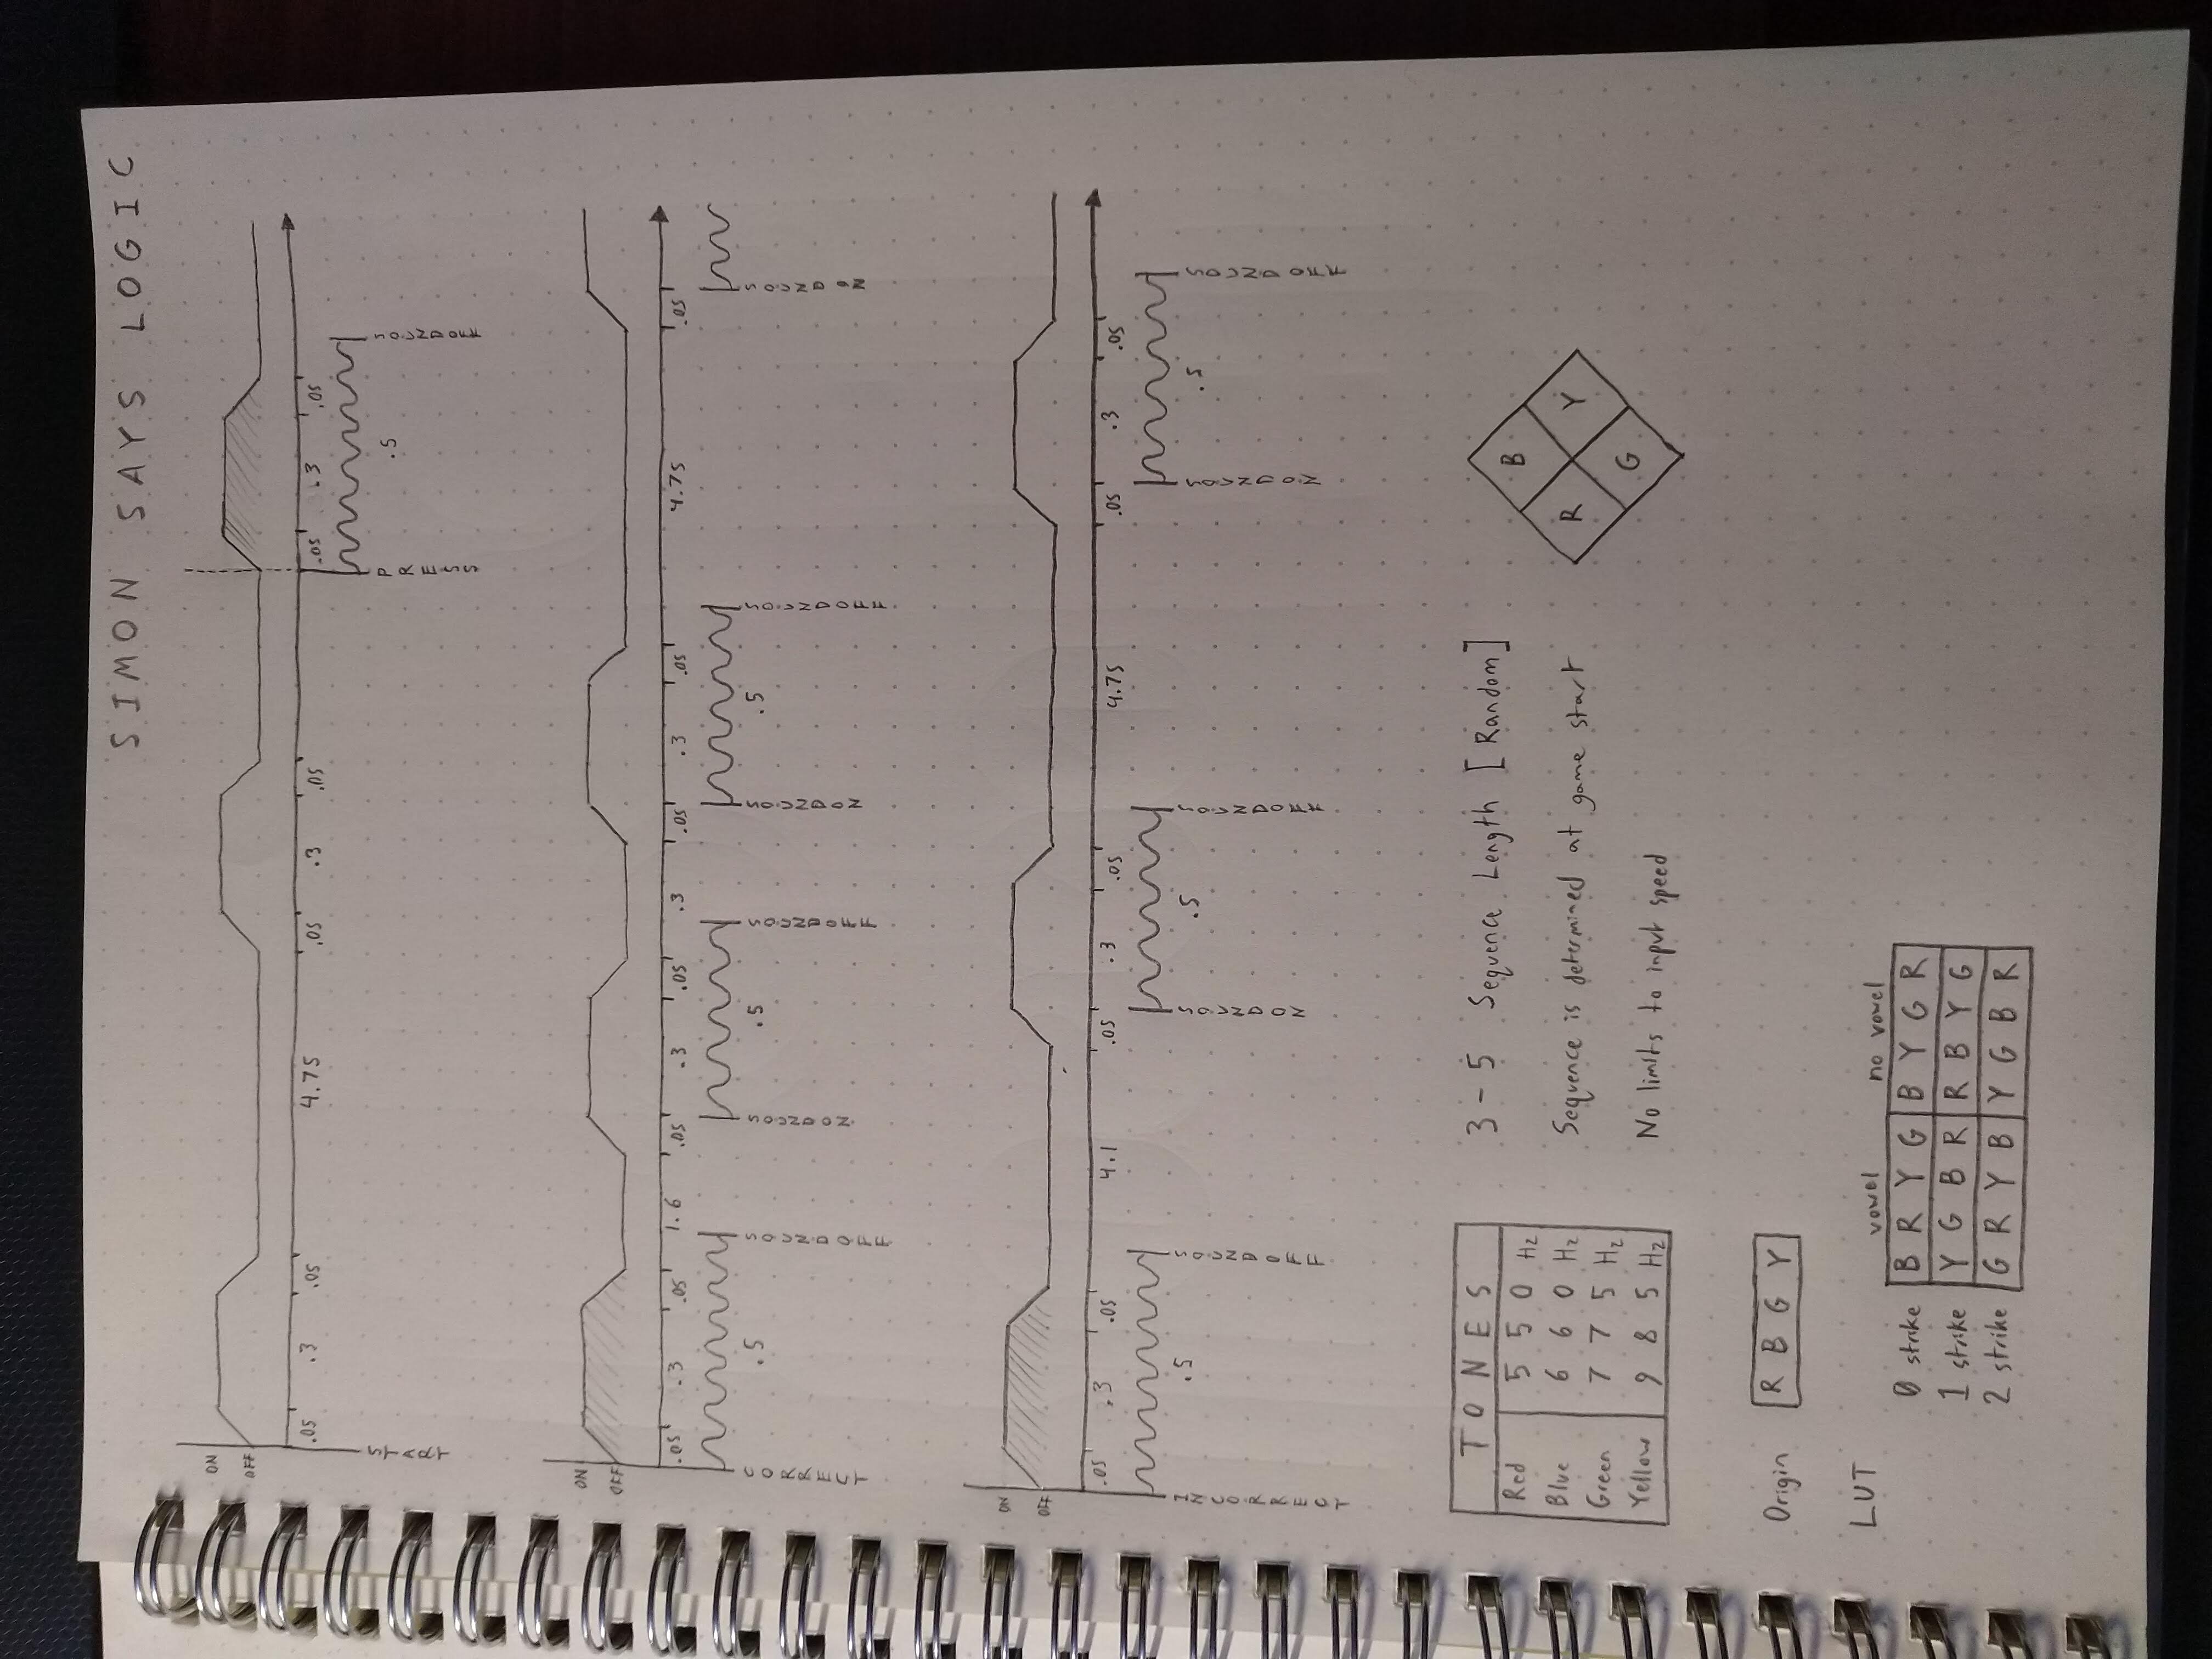 SIMON SAYS LOGIC
ON
OFF
.05 .3 .05 4.75 .05 .3 .05 .05 .3 .05
.5
START
PRESS
SOUND OFF
ON
OFF
.05 .3 .05 1.6 .05 .3 .05 .3 .05 .3 .05 4.75 .05
.5 .5 .5
CORRECT
SOUND OFF
SOUND ON
SOUND OFF
SOUND ON
SOUND OFF
SOUND ON
ON
OFF
.05 .3 .05 4.1 .05 .3 .05 4.75 .05 .3 .05
.5 .5 .5
INCORRECT
SOUND OFF
SOUND ON
SOUND OFF
SOUND ON
SOUND OFF
TONES
Red 550 Hz
Blue 660 Hz
Green 775 Hz
Yellow 985 Hz
3-5 Sequence Length [Random]
Sequence is determined at game start
No limits to input speed
B
R Y
G
Origin R B G Y
LUT
vowel no vowel
0 strike B R Y G B Y G R
1 strike Y G B R R B Y G
2 strike G R Y B Y G B R